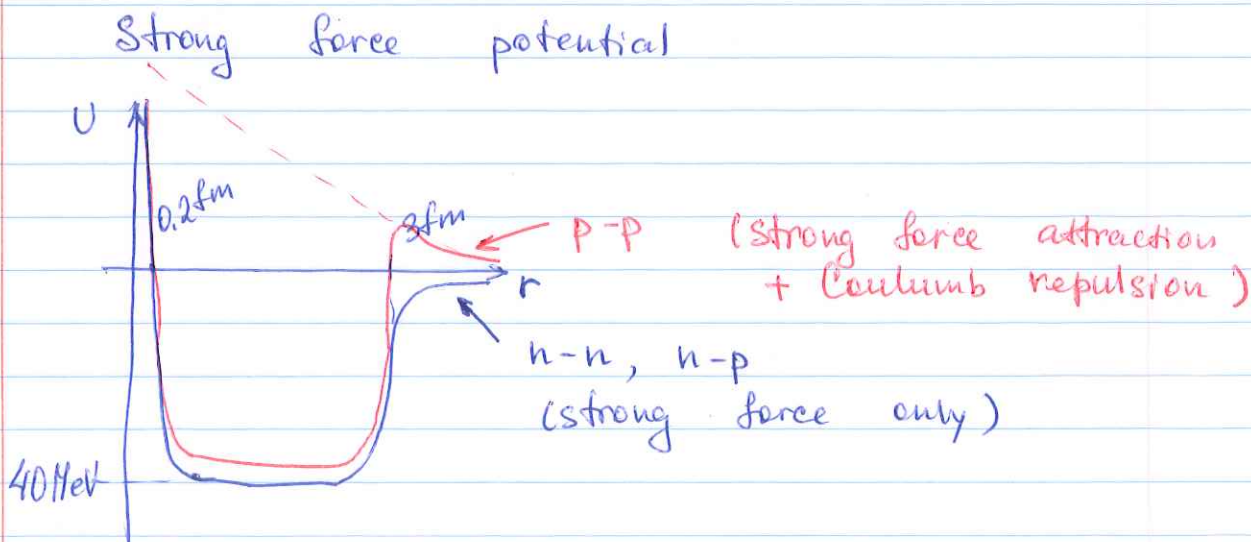 Strong force potential
U
0.2 fm
3fm
p-p (strong force attraction
+ Coulumb repulsion)
r
n-n, n-p
(strong force only)
40 MeV